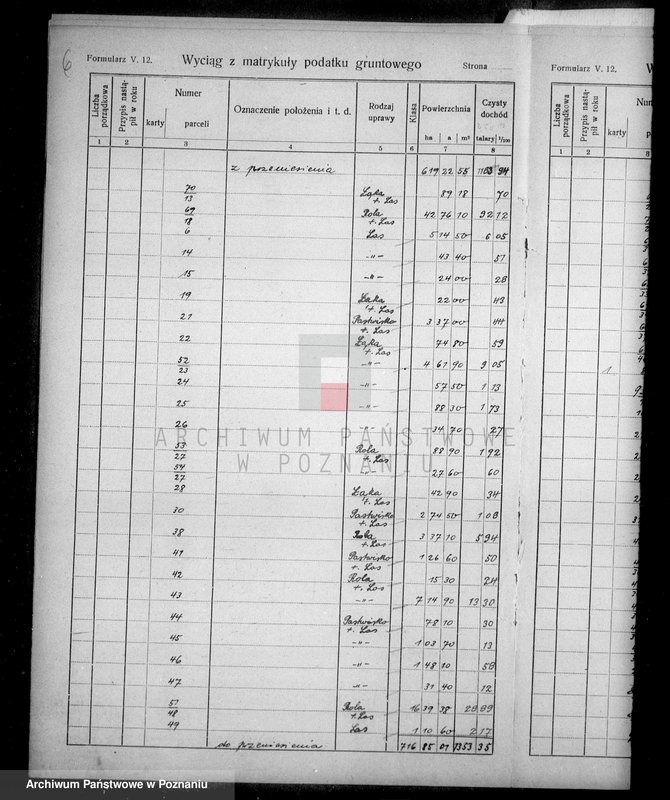 6
Formularz V. 12. Wyciąg z matrykuły podatku gruntowego Strona
Liczba porządkowa Przypis nastąpił w roku Numer karty parceli Oznaczenie położenia i t. d. Rodzaj uprawy Klasa Powierzchnia ha a m² Czysty dochód talary 1/100
1 2 3 4 5 6 7 8
z przeniesienia 619 22 55 94
70/13 Łąka + Las 89 18 70
69/18 Rola + Las 42 76 10 92 12
6 Las 5 14 50 6 05
14 -"- 43 40 51
15 -"- 24 00 28
19 Łąka + Las 22 00 43
21 Pastwisko + Las 3 37 00 44
22 Łąka + Las 74 80 59
52/23 -"- 4 61 90 9 05
24 -"- 57 50 1 13
25 -"- 88 30 1 73
26 -"- 34 70 27
53/27 Rola + Las 88 90 1 92
54/27 -"- 27 60 60
28 Łąka + Las 42 90 34
30 Pastwisko + Las 2 74 50 1 08
38 Rola + Las 3 37 10 5 94
41 Pastwisko + Las 1 26 60 50
42 Rola + Las 15 30 24
43 -"- 7 14 90 13 30
44 Pastwisko + Las 78 10 30
45 -"- 1 03 70 13
46 -"- 1 48 10 58
47 -"- 31 40 12
51/48 Rola + Las 16 39 38 28 89
49 Las 1 10 60 2 17
do przeniesienia 716 85 01 1353 35
Formularz V. 12. W
Liczba porządkowa Przypis nastąpił w roku karty
1 2
ARCHIWUM PAŃSTWOWE
W POZNANIU
Archiwum Państwowe w Poznaniu